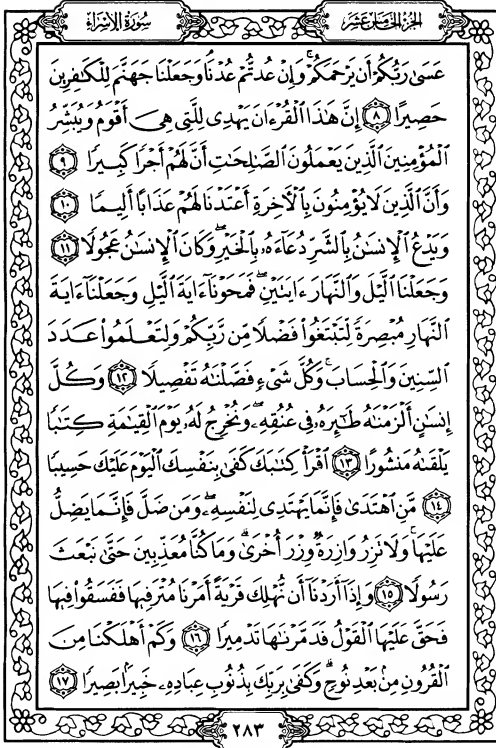 الجزء الخامس عشر
سورة الإسراء
عَسَىٰ رَبُّكُمْ أَن يَرْحَمَكُمْ ۚ وَإِنْ عُدتُّمْ عُدْنَا ۘ وَجَعَلْنَا جَهَنَّمَ لِلْكَٰفِرِينَ
حَصِيرًا ٨ إِنَّ هَٰذَا الْقُرْءَانَ يَهْدِى لِلَّتِى هِىَ أَقْوَمُ وَيُبَشِّرُ
الْمُؤْمِنِينَ الَّذِينَ يَعْمَلُونَ الصَّٰلِحَٰتِ أَنَّ لَهُمْ أَجْرًا كَبِيرًا ٩
وَأَنَّ الَّذِينَ لَا يُؤْمِنُونَ بِالْءَاخِرَةِ أَعْتَدْنَا لَهُمْ عَذَابًا أَلِيمًا ١٠
وَيَدْعُ الْإِنسَٰنُ بِالشَّرِّ دُعَآءَهُۥ بِالْخَيْرِ ۖ وَكَانَ الْإِنسَٰنُ عَجُولًا ١١
وَجَعَلْنَا الَّيْلَ وَالنَّهَارَ ءَايَتَيْنِ ۖ فَمَحَوْنَآ ءَايَةَ الَّيْلِ وَجَعَلْنَآ ءَايَةَ
النَّهَارِ مُبْصِرَةً لِّتَبْتَغُوا۟ فَضْلًا مِّن رَّبِّكُمْ وَلِتَعْلَمُوا۟ عَدَدَ
السِّنِينَ وَالْحِسَابَ ۚ وَكُلَّ شَىْءٍ فَصَّلْنَٰهُ تَفْصِيلًا ١٢ وَكُلَّ
إِنسَٰنٍ أَلْزَمْنَٰهُ طَٰٓئِرَهُۥ فِى عُنُقِهِۦ ۖ وَنُخْرِجُ لَهُۥ يَوْمَ الْقِيَٰمَةِ كِتَٰبًا
يَلْقَىٰهُ مَنشُورًا ١٣ اقْرَأْ كِتَٰبَكَ كَفَىٰ بِنَفْسِكَ الْيَوْمَ عَلَيْكَ حَسِيبًا
١٤ مَّنِ اهْتَدَىٰ فَإِنَّمَا يَهْتَدِى لِنَفْسِهِۦ ۖ وَمَن ضَلَّ فَإِنَّمَا يَضِلُّ
عَلَيْهَا ۚ وَلَا تَزِرُ وَازِرَةٌ وِزْرَ أُخْرَىٰ ۗ وَمَا كُنَّا مُعَذِّبِينَ حَتَّىٰ نَبْعَثَ
رَسُولًا ١٥ وَإِذَآ أَرَدْنَآ أَن نُّهْلِكَ قَرْيَةً أَمَرْنَا مُتْرَفِيهَا فَفَسَقُوا۟ فِيهَا
فَحَقَّ عَلَيْهَا الْقَوْلُ فَدَمَّرْنَٰهَا تَدْمِيرًا ١٦ وَكَمْ أَهْلَكْنَا مِنَ
الْقُرُونِ مِنۢ بَعْدِ نُوحٍ ۗ وَكَفَىٰ بِرَبِّكَ بِذُنُوبِ عِبَادِهِۦ خَبِيرًۢا بَصِيرًا ١٧
٢٨٣